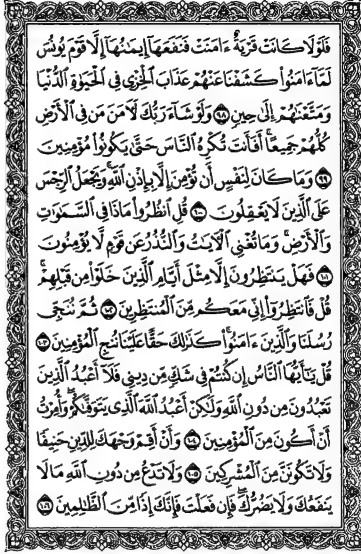 فَلَوْلَا كَانَتْ قَرْيَةٌ ءَامَنَتْ فَنَفَعَهَآ إِيمَٰنُهَآ إِلَّا قَوْمَ يُونُسَ
لَمَّآ ءَامَنُوا۟ كَشَفْنَا عَنْهُمْ عَذَابَ ٱلْخِزْىِ فِى ٱلْحَيَوٰةِ ٱلدُّنْيَا
وَمَتَّعْنَٰهُمْ إِلَىٰ حِينٍ ۝٩٨ وَلَوْ شَآءَ رَبُّكَ لَـَٔامَنَ مَن فِى ٱلْأَرْضِ
كُلُّهُمْ جَمِيعًا ۚ أَفَأَنتَ تُكْرِهُ ٱلنَّاسَ حَتَّىٰ يَكُونُوا۟ مُؤْمِنِينَ
۝٩٩ وَمَا كَانَ لِنَفْسٍ أَن تُؤْمِنَ إِلَّا بِإِذْنِ ٱللَّهِ ۚ وَيَجْعَلُ ٱلرِّجْسَ
عَلَى ٱلَّذِينَ لَا يَعْقِلُونَ ۝١٠٠ قُلِ ٱنظُرُوا۟ مَاذَا فِى ٱلسَّمَٰوَٰتِ
وَٱلْأَرْضِ ۚ وَمَا تُغْنِى ٱلْـَٔايَٰتُ وَٱلنُّذُرُ عَن قَوْمٍ لَّا يُؤْمِنُونَ
۝١٠١ فَهَلْ يَنتَظِرُونَ إِلَّا مِثْلَ أَيَّامِ ٱلَّذِينَ خَلَوْا۟ مِن قَبْلِهِمْ ۚ
قُلْ فَٱنتَظِرُوٓا۟ إِنِّى مَعَكُم مِّنَ ٱلْمُنتَظِرِينَ ۝١٠٢ ثُمَّ نُنَجِّى
رُسُلَنَا وَٱلَّذِينَ ءَامَنُوا۟ ۚ كَذَٰلِكَ حَقًّا عَلَيْنَا نُنجِ ٱلْمُؤْمِنِينَ ۝١٠٣
قُلْ يَٰٓأَيُّهَا ٱلنَّاسُ إِن كُنتُمْ فِى شَكٍّ مِّن دِينِى فَلَآ أَعْبُدُ ٱلَّذِينَ
تَعْبُدُونَ مِن دُونِ ٱللَّهِ وَلَٰكِنْ أَعْبُدُ ٱللَّهَ ٱلَّذِى يَتَوَفَّىٰكُمْ ۖ وَأُمِرْتُ
أَنْ أَكُونَ مِنَ ٱلْمُؤْمِنِينَ ۝١٠٤ وَأَنْ أَقِمْ وَجْهَكَ لِلدِّينِ حَنِيفًا
وَلَا تَكُونَنَّ مِنَ ٱلْمُشْرِكِينَ ۝١٠٥ وَلَا تَدْعُ مِن دُونِ ٱللَّهِ مَا لَا
يَنفَعُكَ وَلَا يَضُرُّكَ ۖ فَإِن فَعَلْتَ فَإِنَّكَ إِذًا مِّنَ ٱلظَّٰلِمِينَ ۝١٠٦